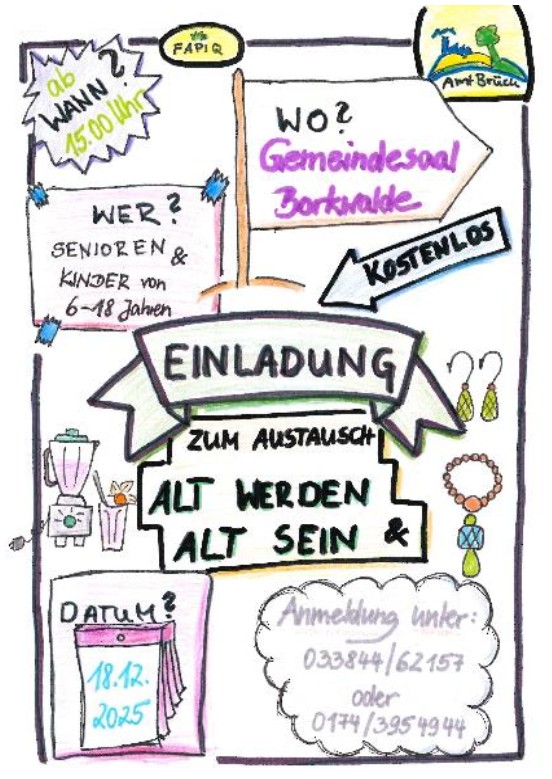 FAPIQ
Amt Brück
ab
WANN?
15.00 Uhr
WO?
Gemeindesaal
Borkwalde
WER?
SENIOREN &
KINDER von
6-18 Jahren
KOSTENLOS
EINLADUNG
ZUM AUSTAUSCH
ALT WERDEN
ALT SEIN &
DATUM?
18.12.
2025
Anmeldung unter:
033844/62157
oder
0174/3954944